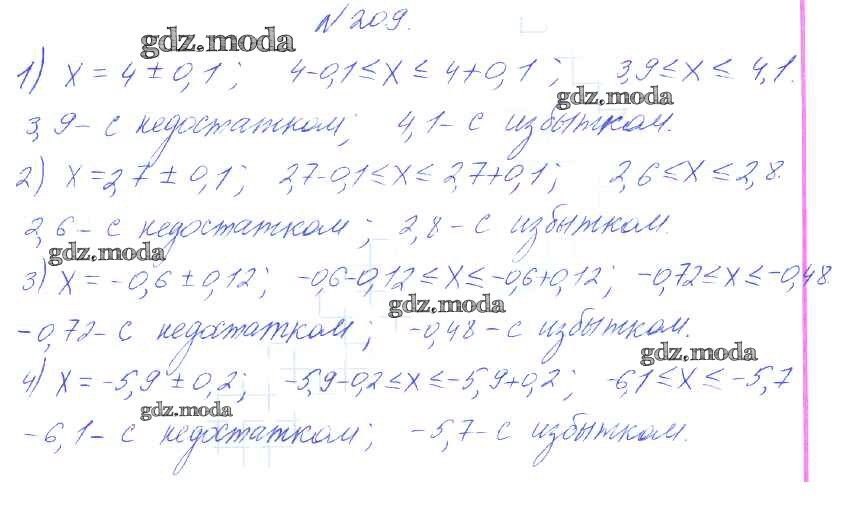 № 209.
gdz.moda
1) x = 4 ± 0,1; 4-0,1 ≤ x ≤ 4+0,1; 3,9 ≤ x ≤ 4,1.
gdz.moda
3,9 - с недостатком; 4,1 - с избытком.
2) x = 2,7 ± 0,1; 2,7-0,1 ≤ x ≤ 2,7+0,1; 2,6 ≤ x ≤ 2,8.
2,6 - с недостатком; 2,8 - с избытком.
gdz.moda
3) x = -0,6 ± 0,12; -0,6-0,12 ≤ x ≤ -0,6+0,12; -0,72 ≤ x ≤ -0,48
gdz.moda
-0,72 - с недостатком; -0,48 - с избытком.
gdz.moda
4) x = -5,9 ± 0,2; -5,9-0,2 ≤ x ≤ -5,9+0,2; -6,1 ≤ x ≤ -5,7
gdz.moda
-6,1 - с недостатком; -5,7 - с избытком.